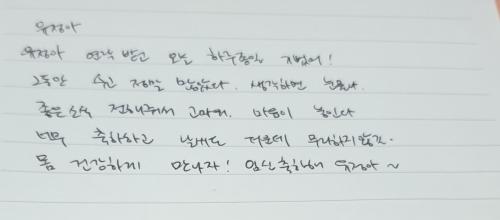 유정아
유정아 연락 받고 오늘 하루종일 지났어!
그동안 수고 정말 많았다. 생각하면 눈물나.
좋은소식 전해줘서 고마워. 마음이 놓인다
너무 축하하고 날씨도 더운데 무리하지 않길.
몸 건강하게 만나자! 임신축하해 유정아~